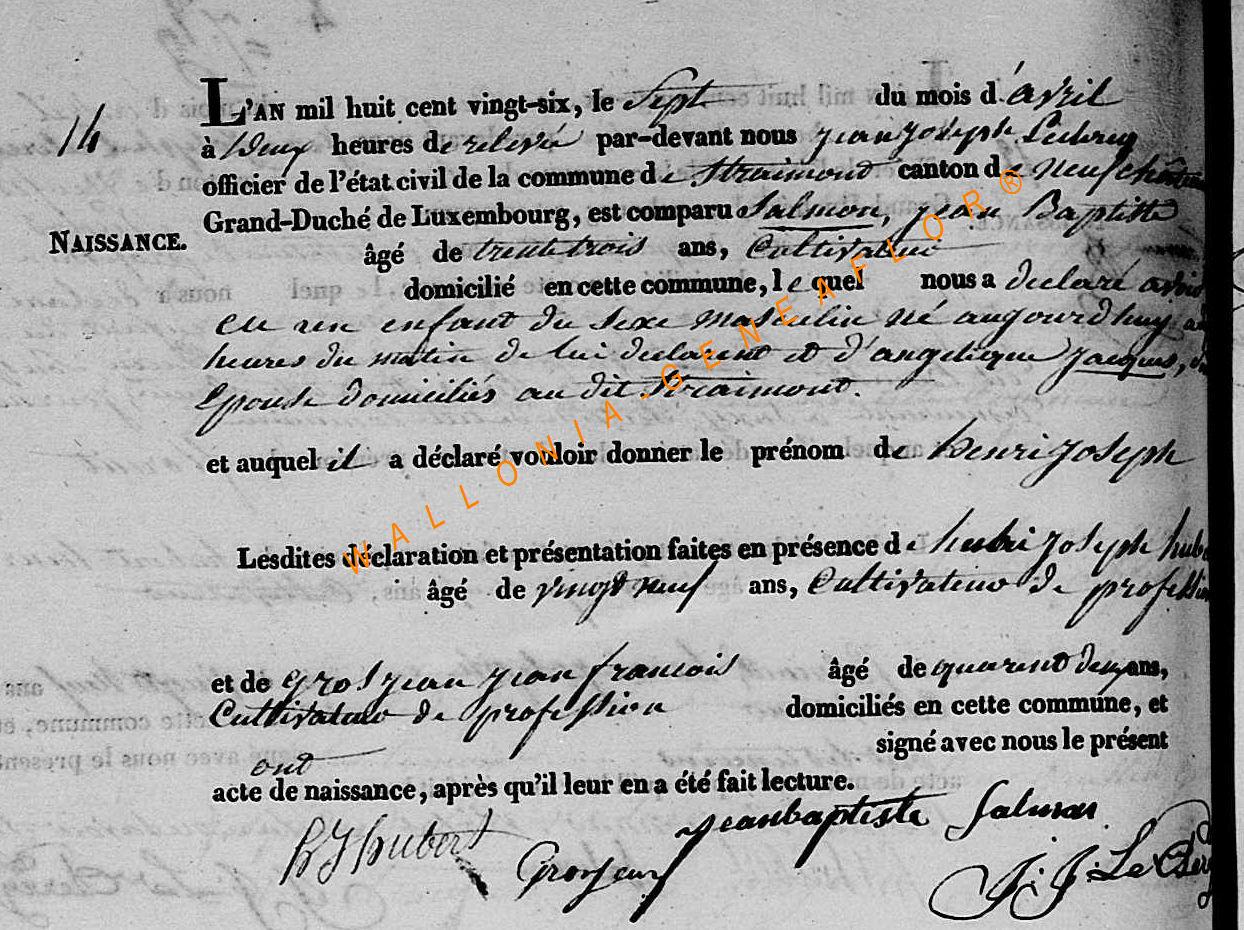 14
L'AN mil huit cent vingt-six, le Sept du mois d'avril
à Deux heures de relevé par-devant nous jean joseph
officier de l'état civil de la commune de Straimont canton de neufchâteau
Grand-Duché de Luxembourg, est comparu Salmon, jean Baptiste
NAISSANCE.
âgé de trente trois ans, Cultivateur
domicilié en cette commune, lequel nous a declaré avoir
eu un enfant du sexe masculin né aujourdhuy
heures du matin de lui declarant et d'angelique jacques,
Epouse domiciliés au dit Straimont.
et auquel il a déclaré vouloir donner le prénom de henri joseph
Lesdites déclaration et présentation faites en présence de joseph
âgé de vingt neuf ans, Cultivateur de profession
et de grosjean jean francois âgé de quarent deux ans,
Cultivateur de profession domiciliés en cette commune, et
ont signé avec nous le présent
acte de naissance, après qu'il leur en a été fait lecture.
hubert
jeanbaptiste Salmon
Grosjean
J. J. Le
WALLONIA.GENEAFLOR®